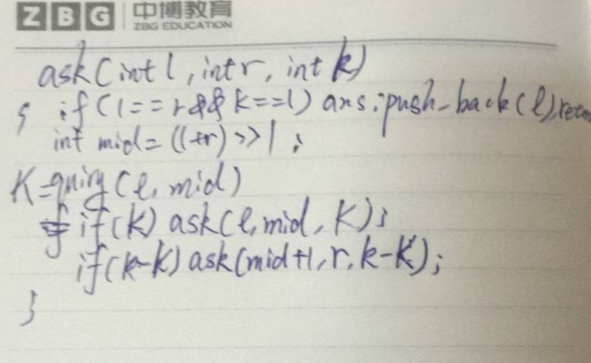 ZBG 中博教育
ZBG EDUCATION
ask(int l, int r, int k)
{ if (l==r && k==1) ans.push_back(l), retu
int mid = (l+r)>>1;
K=quiry(l, mid)
if(k) ask(l, mid, K);
if(k-k) ask(mid+1, r, k-K);
}